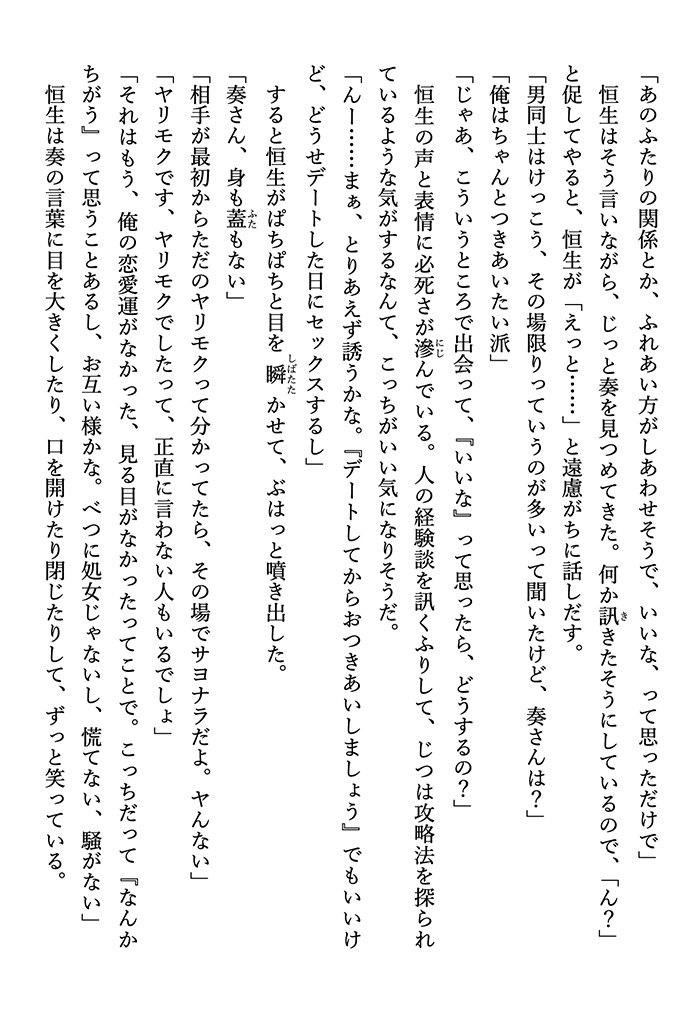 「あのふたりの関係とか、ふれあい方がしあわせそうで、いいな、って思っただけで」
恒生はそう言いながら、じっと奏を見つめてきた。何か訊きたそうにしているので、「ん？」
と促してやると、恒生が「えっと……」と遠慮がちに話しだす。
「男同士はけっこう、その場限りっていうのが多いって聞いたけど、奏さんは？」
「俺はちゃんとつきあいたい派」
「じゃあ、こういうところで出会って、『いいな』って思ったら、どうするの？」
恒生の声と表情に必死さが滲んでいる。人の経験談を訊くふりして、じつは攻略法を探られ
ているような気がするなんて、こっちがいい気になりそうだ。
「んー……まぁ、とりあえず誘うかな。『デートしてからおつきあいしましょう』でもいいけ
ど、どうせデートした日にセックスするし」
すると恒生がぱちぱちと目を瞬かせて、ぶはっと噴き出した。
「奏さん、身も蓋もない」
「相手が最初からただのヤリモクって分かってたら、その場でサヨナラだよ。ヤんない」
「ヤリモクです、ヤリモクでしたって、正直に言わない人もいるでしょ」
「それはもう、俺の恋愛運がなかった、見る目がなかったってことで。こっちだって『なんか
ちがう』って思うことあるし、お互い様かな。べつに処女じゃないし、慌てない、騒がない」
恒生は奏の言葉に目を大きくしたり、口を開けたり閉じたりして、ずっと笑っている。